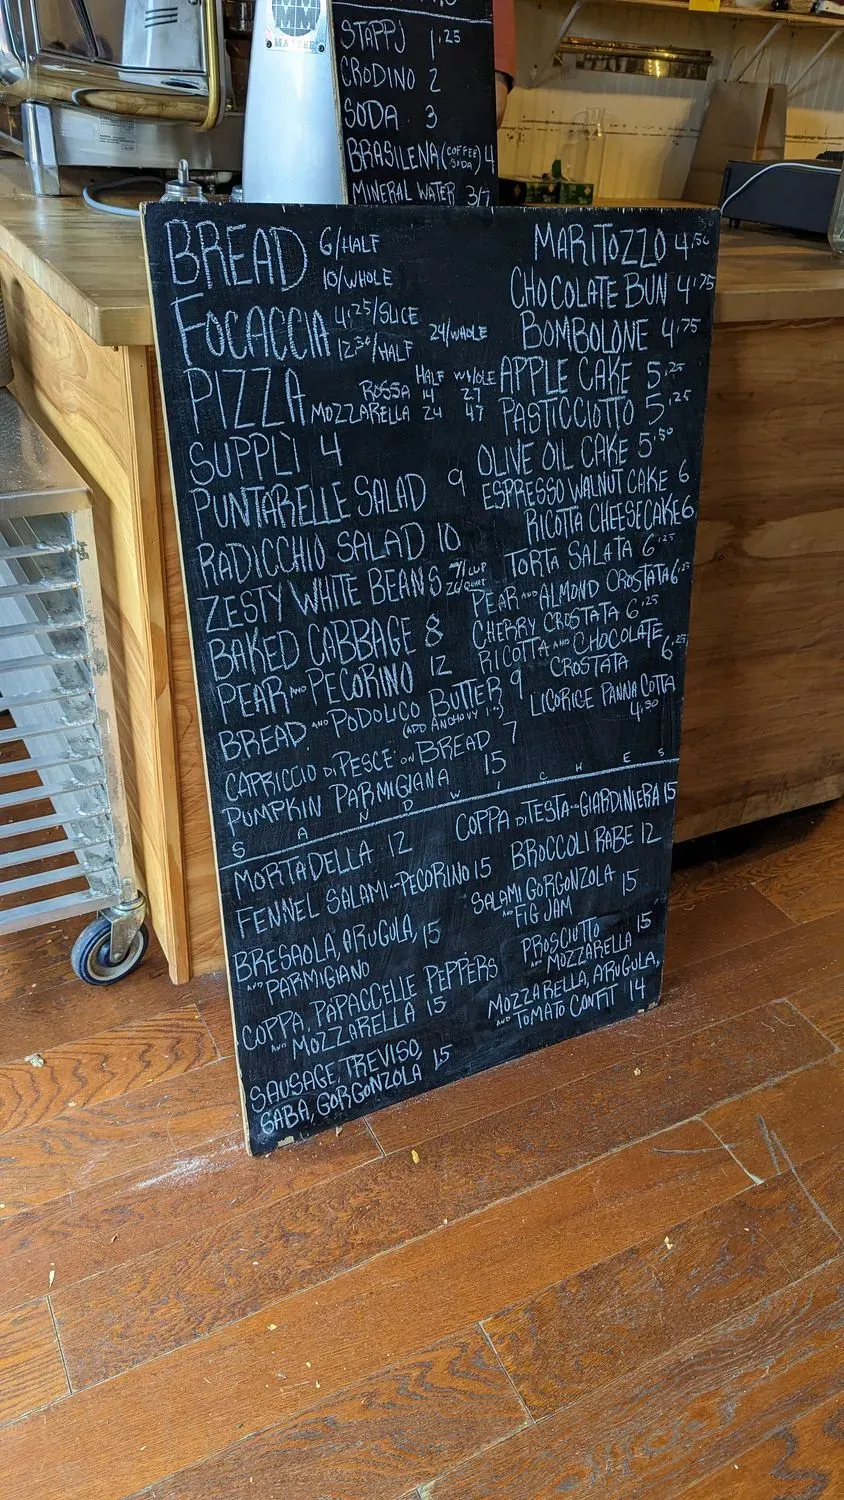 MAZZER
STAPPJ 1.25
CRODINO 2
SODA 3
BRASILENA (COFFEE SODA) 4
MINERAL WATER 3/7
BREAD 6/HALF
10/WHOLE
FOCACCIA 4.25/SLICE
12.50/HALF 24/WHOLE
PIZZA HALF WHOLE
ROSSA 14 27
MOZZARELLA 24 47
SUPPLÌ 4
PUNTARELLE SALAD 9
RADICCHIO SALAD 10
ZESTY WHITE BEANS 7/CUP
26/QUART
BAKED CABBAGE 8
PEAR AND PECORINO 12
BREAD AND PODOLICO BUTTER 9
(ADD ANCHOVY 1.)
CAPRICCIO DI PESCE ON BREAD 7
PUMPKIN PARMIGIANA 15
MARITOZZO 4.50
CHOCOLATE BUN 4.75
BOMBOLONE 4.75
APPLE CAKE 5.25
PASTICCIOTTO 5.25
OLIVE OIL CAKE 5.50
ESPRESSO WALNUT CAKE 6
RICOTTA CHEESECAKE 6
TORTA SALATA 6.25
PEAR AND ALMOND CROSTATA 6.25
CHERRY CROSTATA 6.25
RICOTTA AND CHOCOLATE
CROSTATA 6.25
LICORICE PANNA COTTA
4.50
SANDWICHES
MORTADELLA 12
FENNEL SALAMI PECORINO 15
BRESAOLA, ARUGULA, 15
AND PARMIGIANO
COPPA, PAPACCELLE PEPPERS
AND MOZZARELLA 15
SAUSAGE, TREVISO, 15
SABA, GORGONZOLA
COPPA DI TESTA GIARDINIERA 15
BROCCOLI RABE 12
SALAMI GORGONZOLA 15
AND FIG JAM
PROSCIUTTO 15
AND MOZZARELLA
MOZZARELLA, ARUGULA,
AND TOMATO CONFIT 14